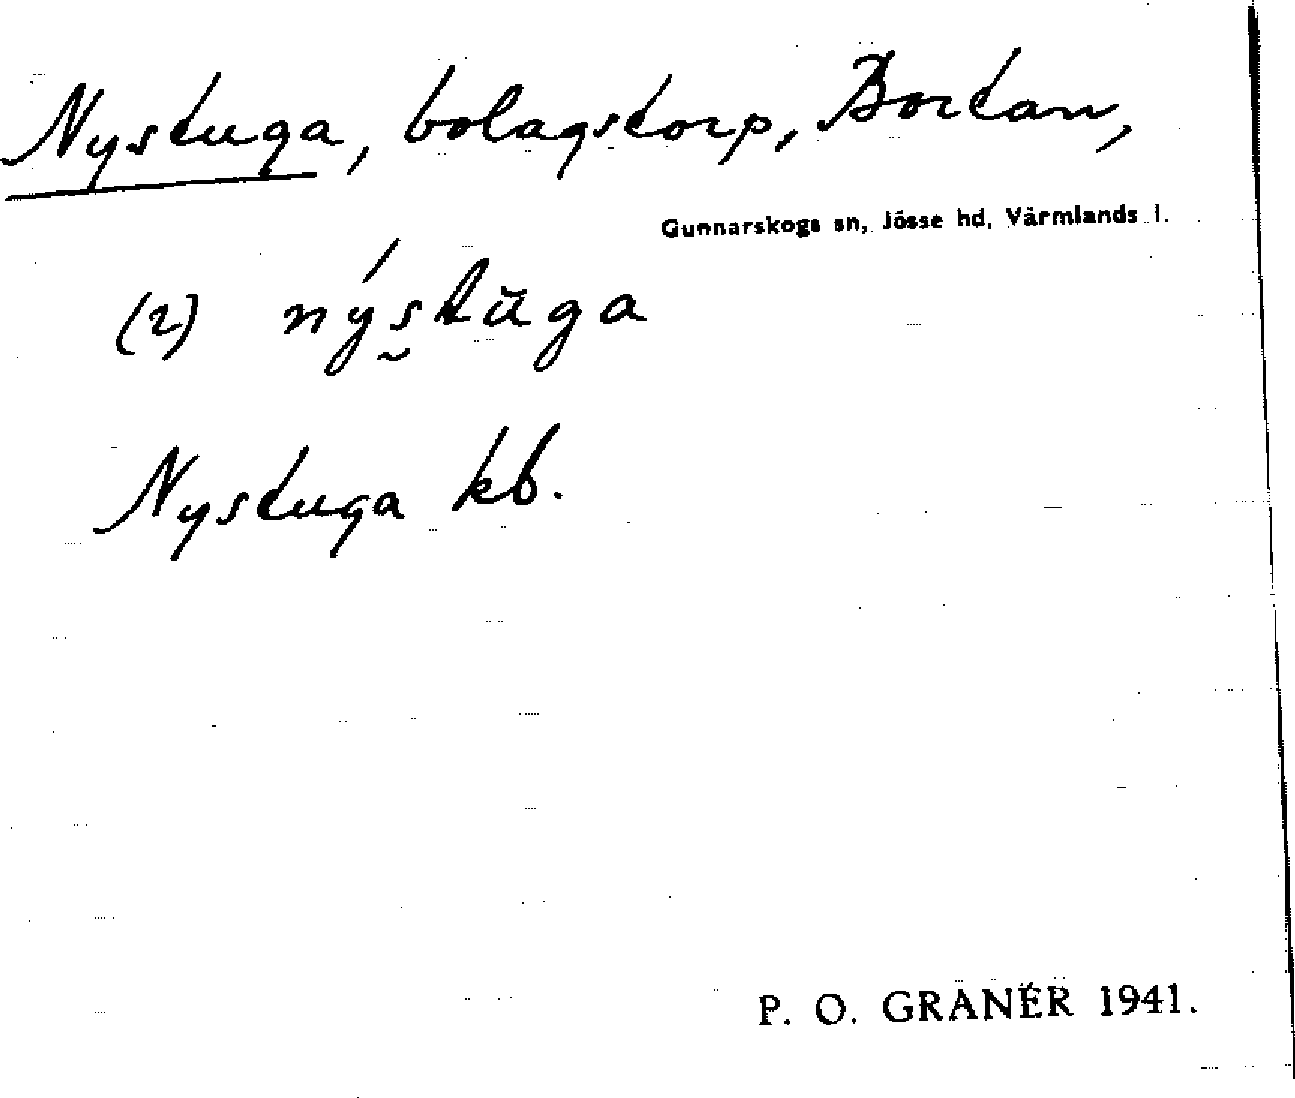 Nystuga, bolagstorp, Bortan,
Gunnarskogs sn, Jösse hd, Värmlands l.
(2) nýs̰tŭga
Nystuga kb.
P. O. GRANÉR 1941.